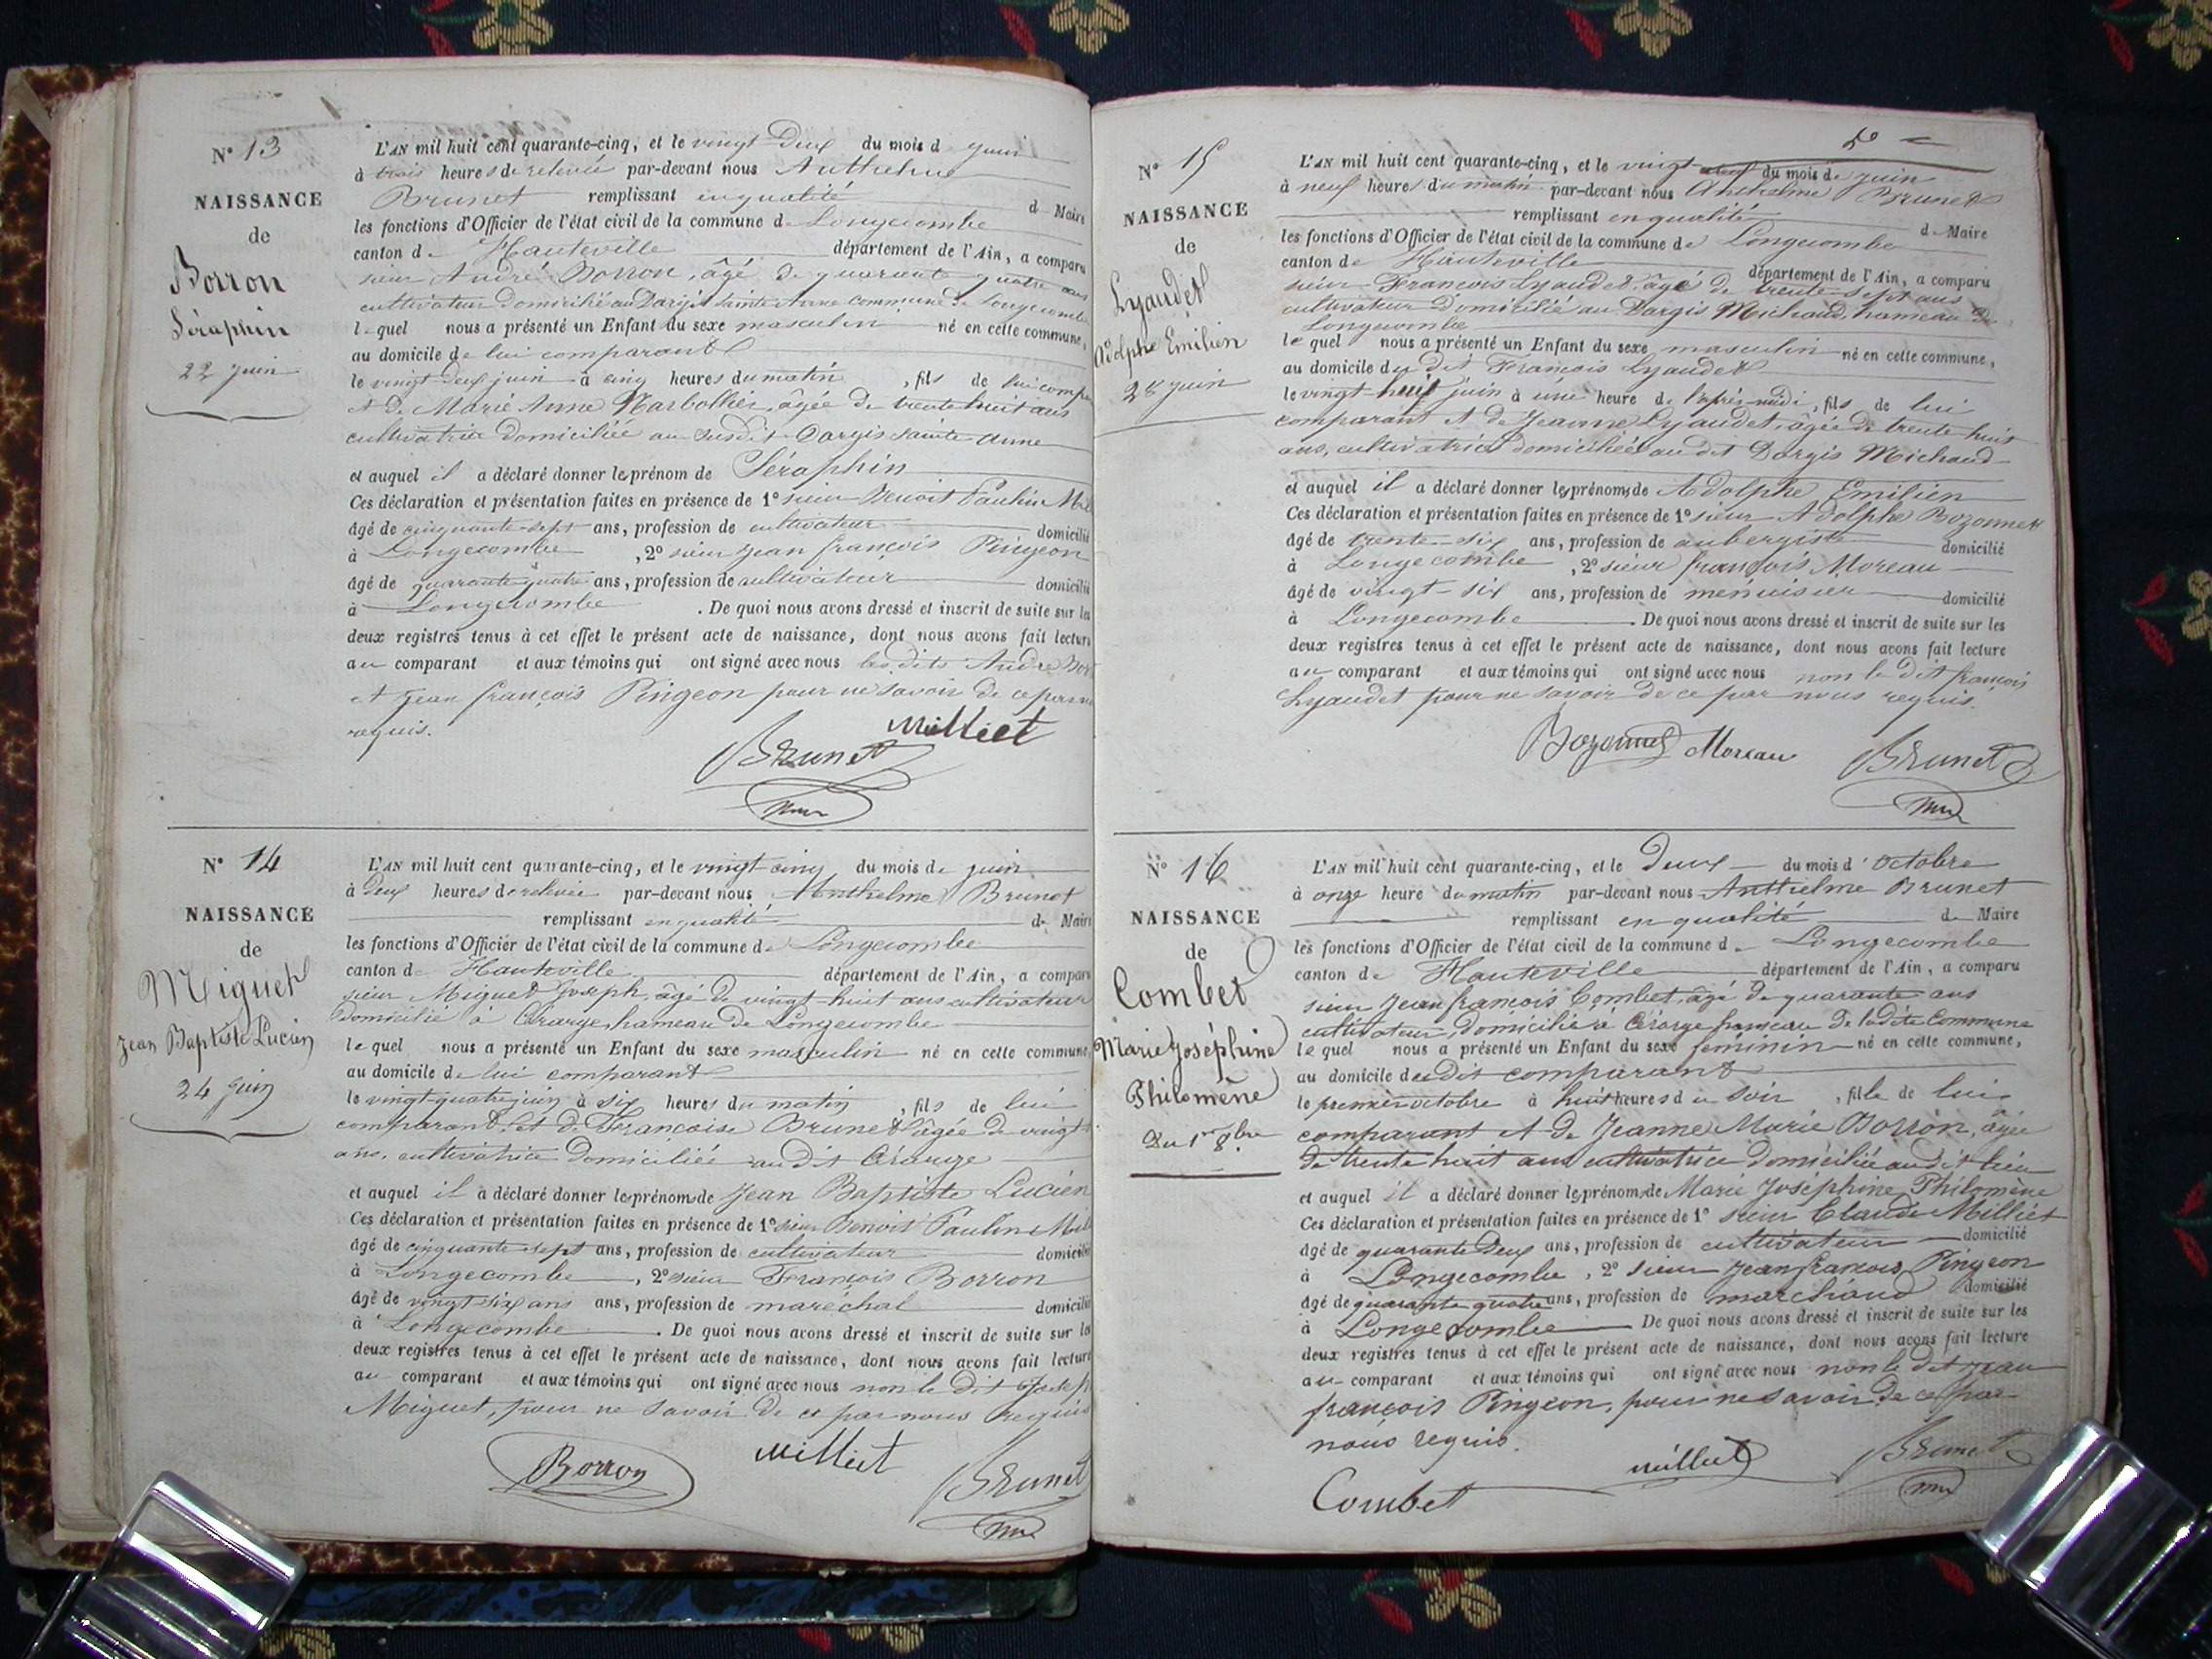 N° 13
NAISSANCE
de
Borron
Séraphin
22 juin
L'AN mil huit cent quarante-cinq, et le vingt deux du mois d juin
à trois heures de relevée par-devant nous Anthelme
Brunet remplissant en qualité d Maire
les fonctions d'Officier de l'état civil de la commune d Longecombe
canton d Hauteville département de l'Ain, a comparu
sieur André Borron, âgé de quarante quatre ans
cultivateur domicilié au Dargis Sainte Anne commune de Longecombe
lequel nous a présenté un Enfant du sexe masculin né en cette commune,
au domicile de lui comparant
le vingt deux juin à cinq heures du matin, fils de lui comp
et de Marie Anne Narbollier, âgée de trente huit ans
cultivatrice domiciliée au susdit Dargis sainte anne
et auquel il a déclaré donner le prénom de Séraphin
Ces déclaration et présentation faites en présence de 1° sieur Benoit Paulin Mil
âgé de cinquante-sept ans, profession de cultivateur domicilié
à Longecombe, 2° sieur Jean françois Pingeon
âgé de quarante quatre ans, profession de cultivateur domicilié
à Longecombe. De quoi nous avons dressé et inscrit de suite sur les
deux registres tenus à cet effet le présent acte de naissance, dont nous avons fait lecture
au comparant et aux témoins qui ont signé avec nous les dits André Borr
et Jean françois Pingeon pour ne savoir de ce par nous
requis.
Milliet
Brunet
N° 14
NAISSANCE
de
Miguet
Jean Baptiste Lucien
24 juin
L'AN mil huit cent quarante-cinq, et le vingt-cinq du mois de juin
à deux heures de relevée par-devant nous Anthelme Brunet
remplissant en qualité d Maire
les fonctions d'Officier de l'état civil de la commune d Longecombe
canton d Hauteville département de l'Ain, a comparu
sieur Miguet Joseph, âgé de vingt-huit ans cultivateur
domicilié à Cérarge, hameau de Longecombe
lequel nous a présenté un Enfant du sexe masculin né en cette commune,
au domicile de lui comparant
le vingt-quatre juin à six heures du matin, fils de lui
comparant et de Françoise Brunet âgée de vingt
ans, cultivatrice domiciliée au dit Cérarge
et auquel il a déclaré donner les prénoms de Jean Baptiste Lucien
Ces déclaration et présentation faites en présence de 1° sieur Benoit Paulin Mil
âgé de cinquante sept ans, profession de cultivateur domicilié
à Longecombe, 2° sieur François Borron
âgé de vingt six ans ans, profession de maréchal domicilié
à Longecombe. De quoi nous avons dressé et inscrit de suite sur les
deux registres tenus à cet effet le présent acte de naissance, dont nous avons fait lecture
au comparant et aux témoins qui ont signé avec nous non le dit Joseph
Miguet, pour ne savoir de ce par nous requis
Borron
Milliet
Brunet
N° 15
NAISSANCE
de
Lyaudet
Adolphe Emilien
28 juin
L'AN mil huit cent quarante-cinq, et le vingt neuf du mois de juin
à neuf heures du matin par-devant nous Anthelme Brunet
remplissant en qualité d Maire
les fonctions d'Officier de l'état civil de la commune de Longecombe
canton de Hauteville département de l'Ain, a comparu
sieur François Lyaudet âgé de trente-sept ans
cultivateur domicilié au Dargis Michaud, hameau de
Longecombe
lequel nous a présenté un Enfant du sexe masculin né en cette commune,
au domicile du dit François Lyaudet
le vingt-huit juin à une heure de l'après-midi, fils de lui
comparant et de Jeanne Lyaudet, âgée de trente huit
ans, cultivatrice domiciliée au dit Dargis Michaud
et auquel il a déclaré donner les prénoms de Adolphe Emilien
Ces déclaration et présentation faites en présence de 1° sieur Adolphe Bozonnet
âgé de trente-six ans, profession de aubergiste domicilié
à Longecombe, 2° sieur françois Moreau
âgé de vingt-six ans, profession de menuisier domicilié
à Longecombe. De quoi nous avons dressé et inscrit de suite sur les
deux registres tenus à cet effet le présent acte de naissance, dont nous avons fait lecture
au comparant et aux témoins qui ont signé avec nous non le dit françois
Lyaudet pour ne savoir de ce par nous requis.
Bozonnet Moreau Brunet
N° 16
NAISSANCE
de
Combet
Marie Joséphine
Philomène
Du 1er 8bre
L'AN mil huit cent quarante-cinq, et le deux du mois d'octobre
à onze heure du matin par-devant nous Anthelme Brunet
remplissant en qualité d Maire
les fonctions d'Officier de l'état civil de la commune d Longecombe
canton de Hauteville département de l'Ain, a comparu
sieur Jean françois Combet, âgé de quarante ans
cultivateur, domicilié à Cérarge hameau de ladite Commune
lequel nous a présenté un Enfant du sexe féminin né en cette commune,
au domicile du dit comparant
le premier octobre à huit heures du soir, fille de lui
comparant et de Jeanne Marie Borron, âgée
de trente huit ans cultivatrice domiciliée audit lieu
et auquel il a déclaré donner les prénoms de Marie Joséphine Philomène
Ces déclaration et présentation faites en présence de 1° sieur Claude Milliet
âgé de quarante deux ans, profession de cultivateur domicilié
à Longecombe, 2° sieur Jean françois Pingeon
âgé de quarante quatre ans, profession de marchand domicilié
à Longecombe De quoi nous avons dressé et inscrit de suite sur les
deux registres tenus à cet effet le présent acte de naissance, dont nous avons fait lecture
au comparant et aux témoins qui ont signé avec nous non le dit Jean
françois Pingeon, pour ne savoir de ce par
nous requis.
Milliet
Brunet
Combet